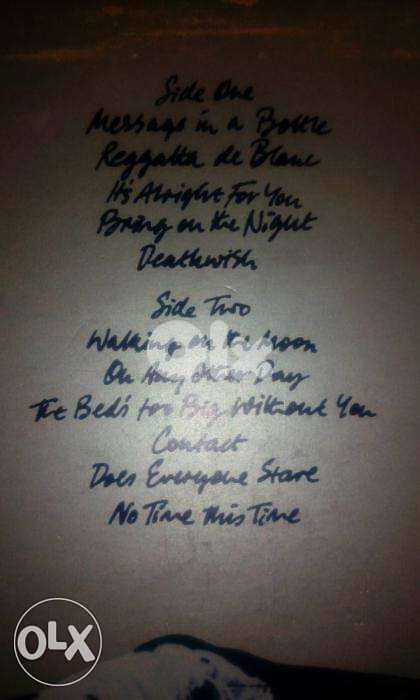 Side One
Message in a Bottle
Reggatta de Blanc
It's Alright For You
Bring on the Night
Deathwish
Side Two
Walking on the Moon
On Any Other Day
The Bed's too Big Without You
Contact
Does Everyone Stare
No Time this Time
OLX
OLX